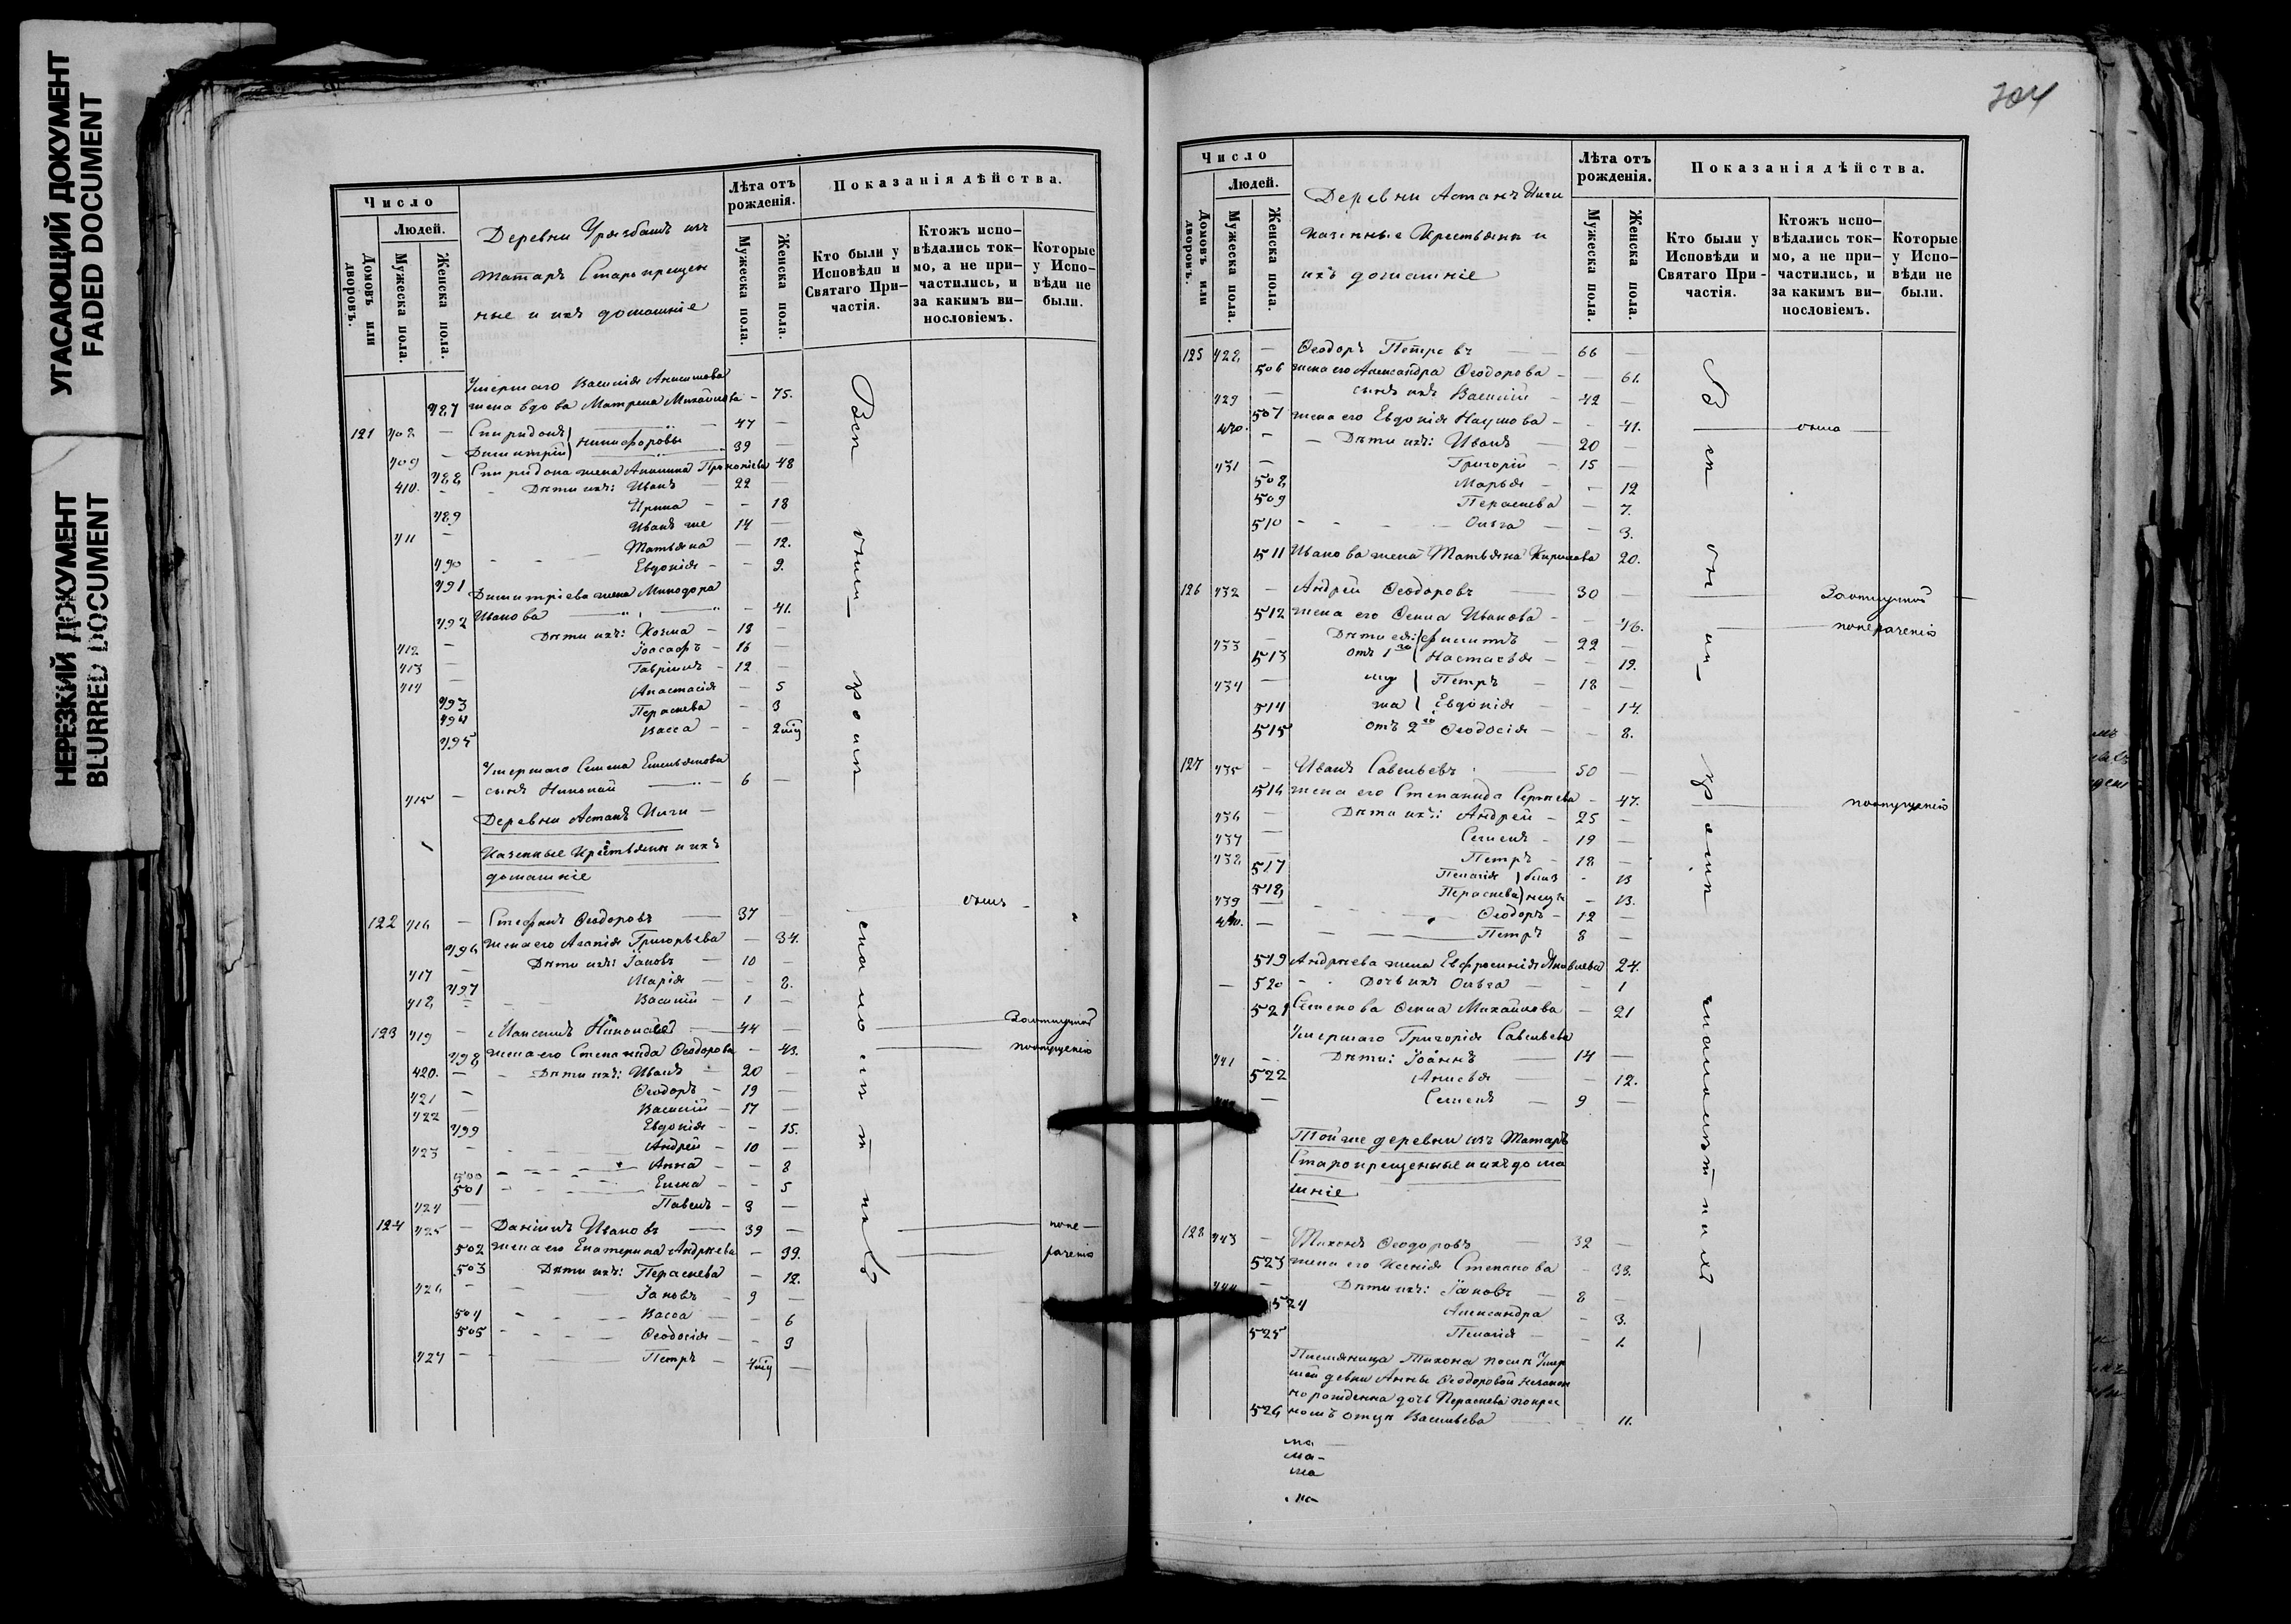 УГАСАЮЩИЙ ДОКУМЕНТ
FADED DOCUMENT
НЕРЕЗКИЙ ДОКУМЕНТ
BLURRED DOCUMENT
Число
Людей.
Домовъ или дворовъ.
Мужеска пола.
Женска пола.
Деревни Урясбашъ изъ
татаръ Старокрещен
ные и ихъ домашніе
Лѣта отъ рожденія.
Мужеска пола.
Женска пола.
Показанія дѣйства.
Кто были у Исповѣди и Святаго Причастія.
Ктожъ исповѣдались токмо, а не причастились, и за какимъ винословіемъ.
Которые у Исповѣди не были.
Умершаго Василія
487 жена вдова Матрена Михайлова — 75.
121 408 — Спиридонъ) — 47 —
409 — Димитрій) Никифоровы 39 —
488 Спиридона жена Акилина Прокопіева 48
410. - Дѣти ихъ: Иванъ — 22 —
489 Ирина - - 18
411 - Иванъ же 14 —
490 Татьяна — 12.
491 Евдокія - - 9.
Димитріева жена Минодора
492 Иванова — 41.
412 — Дѣти ихъ: Козма - 18 -
413 — Іоасафъ - 16 —
414 — Гавріилъ - 12 —
493 Анастасія — 5
494 Параскева - 3
495 Васса - - 2
Умершаго Семена Емельянова
415 — сынъ Николай — 6 —
Деревни Астанъ Илги —
Казенные Крестьяне и ихъ
домашніе
122 416 — Стефанъ Ѳеодоровъ — 37 — онъ
496 жена его Агапія Григорьева — 34.
417 — Дѣти ихъ: Іаковъ — 10 -
497 Марія - - 8.
418 - Василій - 1 —
123 419 — Максимъ Николаевъ — 44 — За отлучкой
498 жена его Степанида Ѳеодорова — 43. по опущенію
420. — Дѣти ихъ: Иванъ - 20 -
421 - Ѳеодоръ - 19 —
422 — Василій - 17 —
499 Евдокія - - 15.
423 - Андрей - 10 —
500 Анна - - 8
501 Елена - - 5
424 — Павелъ - 3 —
124 425 — Даніилъ Ивановъ — 39 — по не-
502 жена его Екатерина Андреева — 39. раченію
503 Дѣти ихъ: Параскева — 12.
426 - Іаковъ - 9 —
504 Васса — — 6
505 Ѳеодосія - - 3
427 — Петръ — 4 —
Всѣ они — кромѣ — сил
304
Число
Людей.
Домовъ или дворовъ.
Мужеска пола.
Женска пола.
Деревни Астанъ Илги
казенные Крестьяне и
ихъ домашніе
Лѣта отъ рожденія.
Мужеска пола.
Женска пола.
Показанія дѣйства.
Кто были у Исповѣди и Святаго Причастія.
Ктожъ исповѣдались токмо, а не причастились, и за какимъ винословіемъ.
Которые у Исповѣди не были.
125 428 — Ѳеодоръ Петровъ — 66 —
506 жена его Александра Ѳеодорова - — 61.
429 — сынъ ихъ Василій - 42 —
507 жена его Евдокія Наумова - - 41. она
430. - Дѣти ихъ: Иванъ — 20 —
431 - Григорій - 15 —
508 Марья - - 12
509 Параскева — 7.
510 Ольга — — 3.
511 Иванова жена Татьяна Кирилова 20.
126 432 — Андрей Ѳеодоровъ — 30 — За отлучкой
512 жена его Ѳекла Иванова - - 46. по нераченію
433 — Дѣти ея: Филиппъ — 22 —
513 отъ 1го Настасья - - 19.
434 — му Петръ — 18 —
514 жа Евдокія - - 14.
515 отъ 2го Ѳеодосія — - 8.
127 435 - Иванъ Савельевъ — 50 —
516 жена его Степанида Сергеева - 47. по опущенію
436 — Дѣти ихъ: Андрей - 25 —
437 — Семенъ - 19 —
438 — Петръ - 18 —
517 Пелагія ) близ - 13
518 Параскева ) нецы - 13.
439 — Ѳеодоръ - 12 —
440. — Петръ 8 —
519 Андреева жена Евфросинія Яковлева 24.
520 - Дочь ихъ Ольга — - 1
521 Семенова Ѳекла Михайлова — 21
Умершаго Григорія Савельева
441 - Дѣти: Іоаннъ — 14 —
522 Анисья — - 12.
— Семенъ — 9 —
Той же деревни изъ Татаръ
Старокрещенные и ихъ дома
шніе
128 443 - Тихонъ Ѳеодоровъ — 32 —
523 жена его Ксенія Степанова - 33.
444 — Дѣти ихъ: Іаковъ — 8 —
524 Александра - 3.
525 Пелагія — - 1.
Племяница Тихона послѣ Умер
шей девки Анны Ѳеодоровой незакон
но рожденна дочь Параскева по крес
526 номъ отцѣ Васильева — 11.
Всѣ они — кромѣ
ма —
ма-
ма